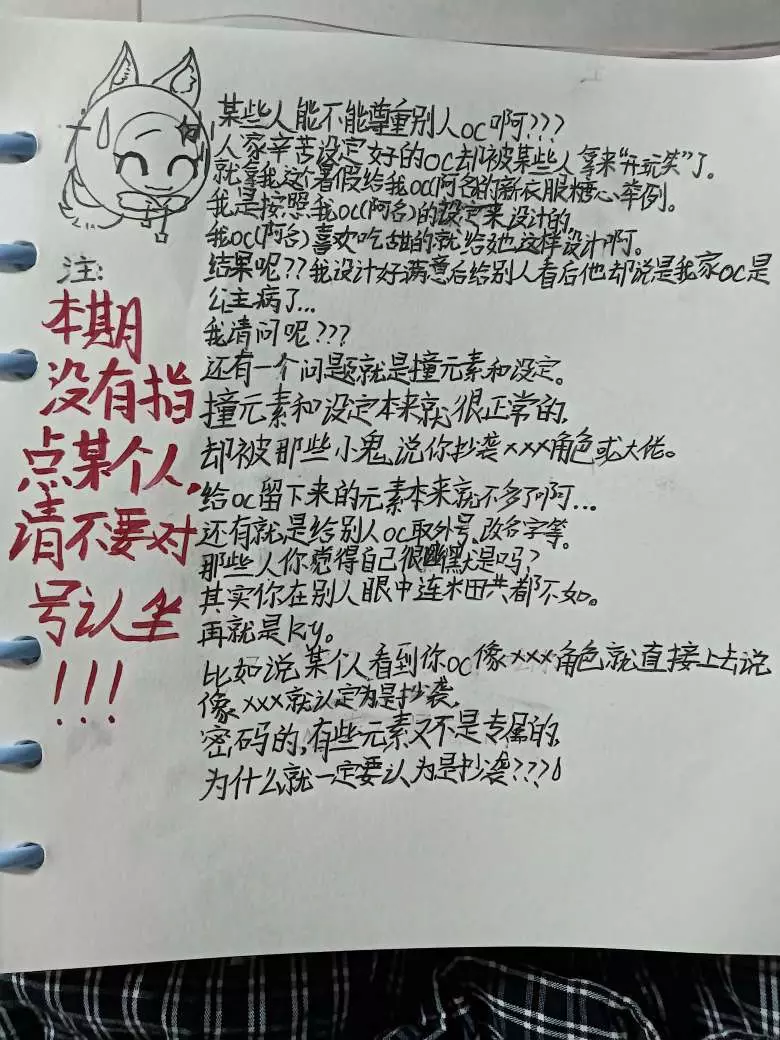 某些人能不能尊重别人oc啊???
人家辛苦设定好的oc却被某些人拿来“开玩笑”了。
就拿我这个暑假给我oc(阿名)的新衣服糖心举例。
我是按照我oc(阿名)的设定来设计的。
我oc(阿名)喜欢吃甜的就给她这样设计啊。
结果呢??我设计好满意后给别人看后他却说是我家oc是
公主病了...
我请问呢???
还有一个问题就是撞元素和设定。
撞元素和设定本来就很正常的,
却被那些小鬼说你抄袭xxx角色或大佬。
给oc留下来的元素本来就不多了啊...
还有就是给别人oc取外号、改名字等。
那些人你觉得自己很幽默是吗?
其实你在别人眼中连米田共都不如。
再就是ky。
比如说某个人看到你oc像xxx角色就直接上去说
像xxx就认定为是抄袭,
密码的,有些元素又不是专属的,
为什么就一定要认为是抄袭???
注:
本期
没有指
点某个人,
请不要对
号认坐
!!!